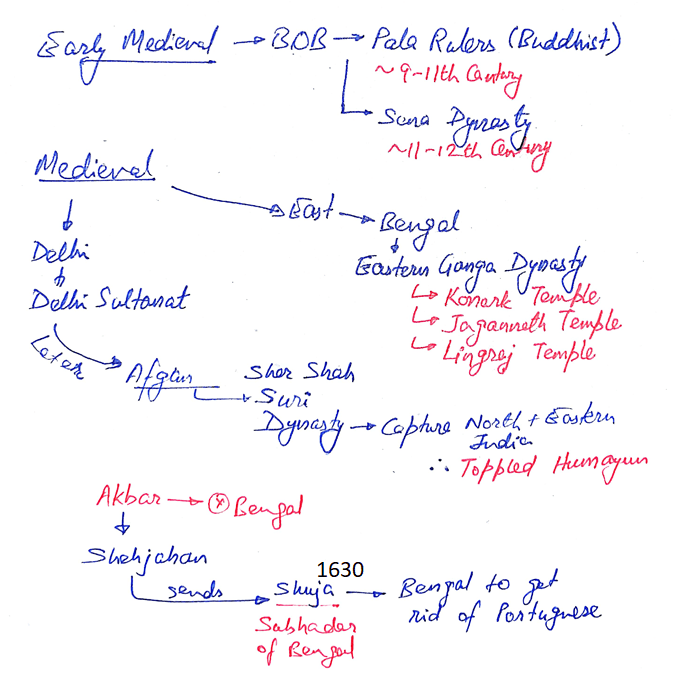 Early Medieval → BOB → Pala Rulers (Buddhist)
~9-11th Century
Sena Dynasty
~11-12th Century
Medieval
→ East → Bengal
Delhi
Eastern Ganga Dynasty
Delhi Sultanat
Konark Temple
Jagannath Temple
Lingraj Temple
Later
Afgan Sher Shah
Suri
Dynasty → Capture North + Eastern
India
∴ Toppled Humayun
Akbar → ⓧ Bengal
Shahjahan
1630
sends → Shuja → Bengal to get
rid of Portuguese
Subhadar
of Bengal